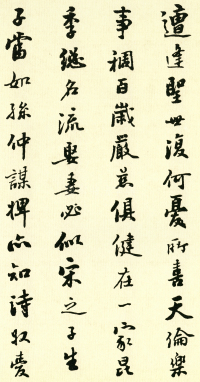 遭逢聖世復何憂所喜天倫樂
事稠百歲嚴慈俱健在一家昆
季總名流娶妻必似宋之子生
子當如孫仲謀婢亦知詩奴愛